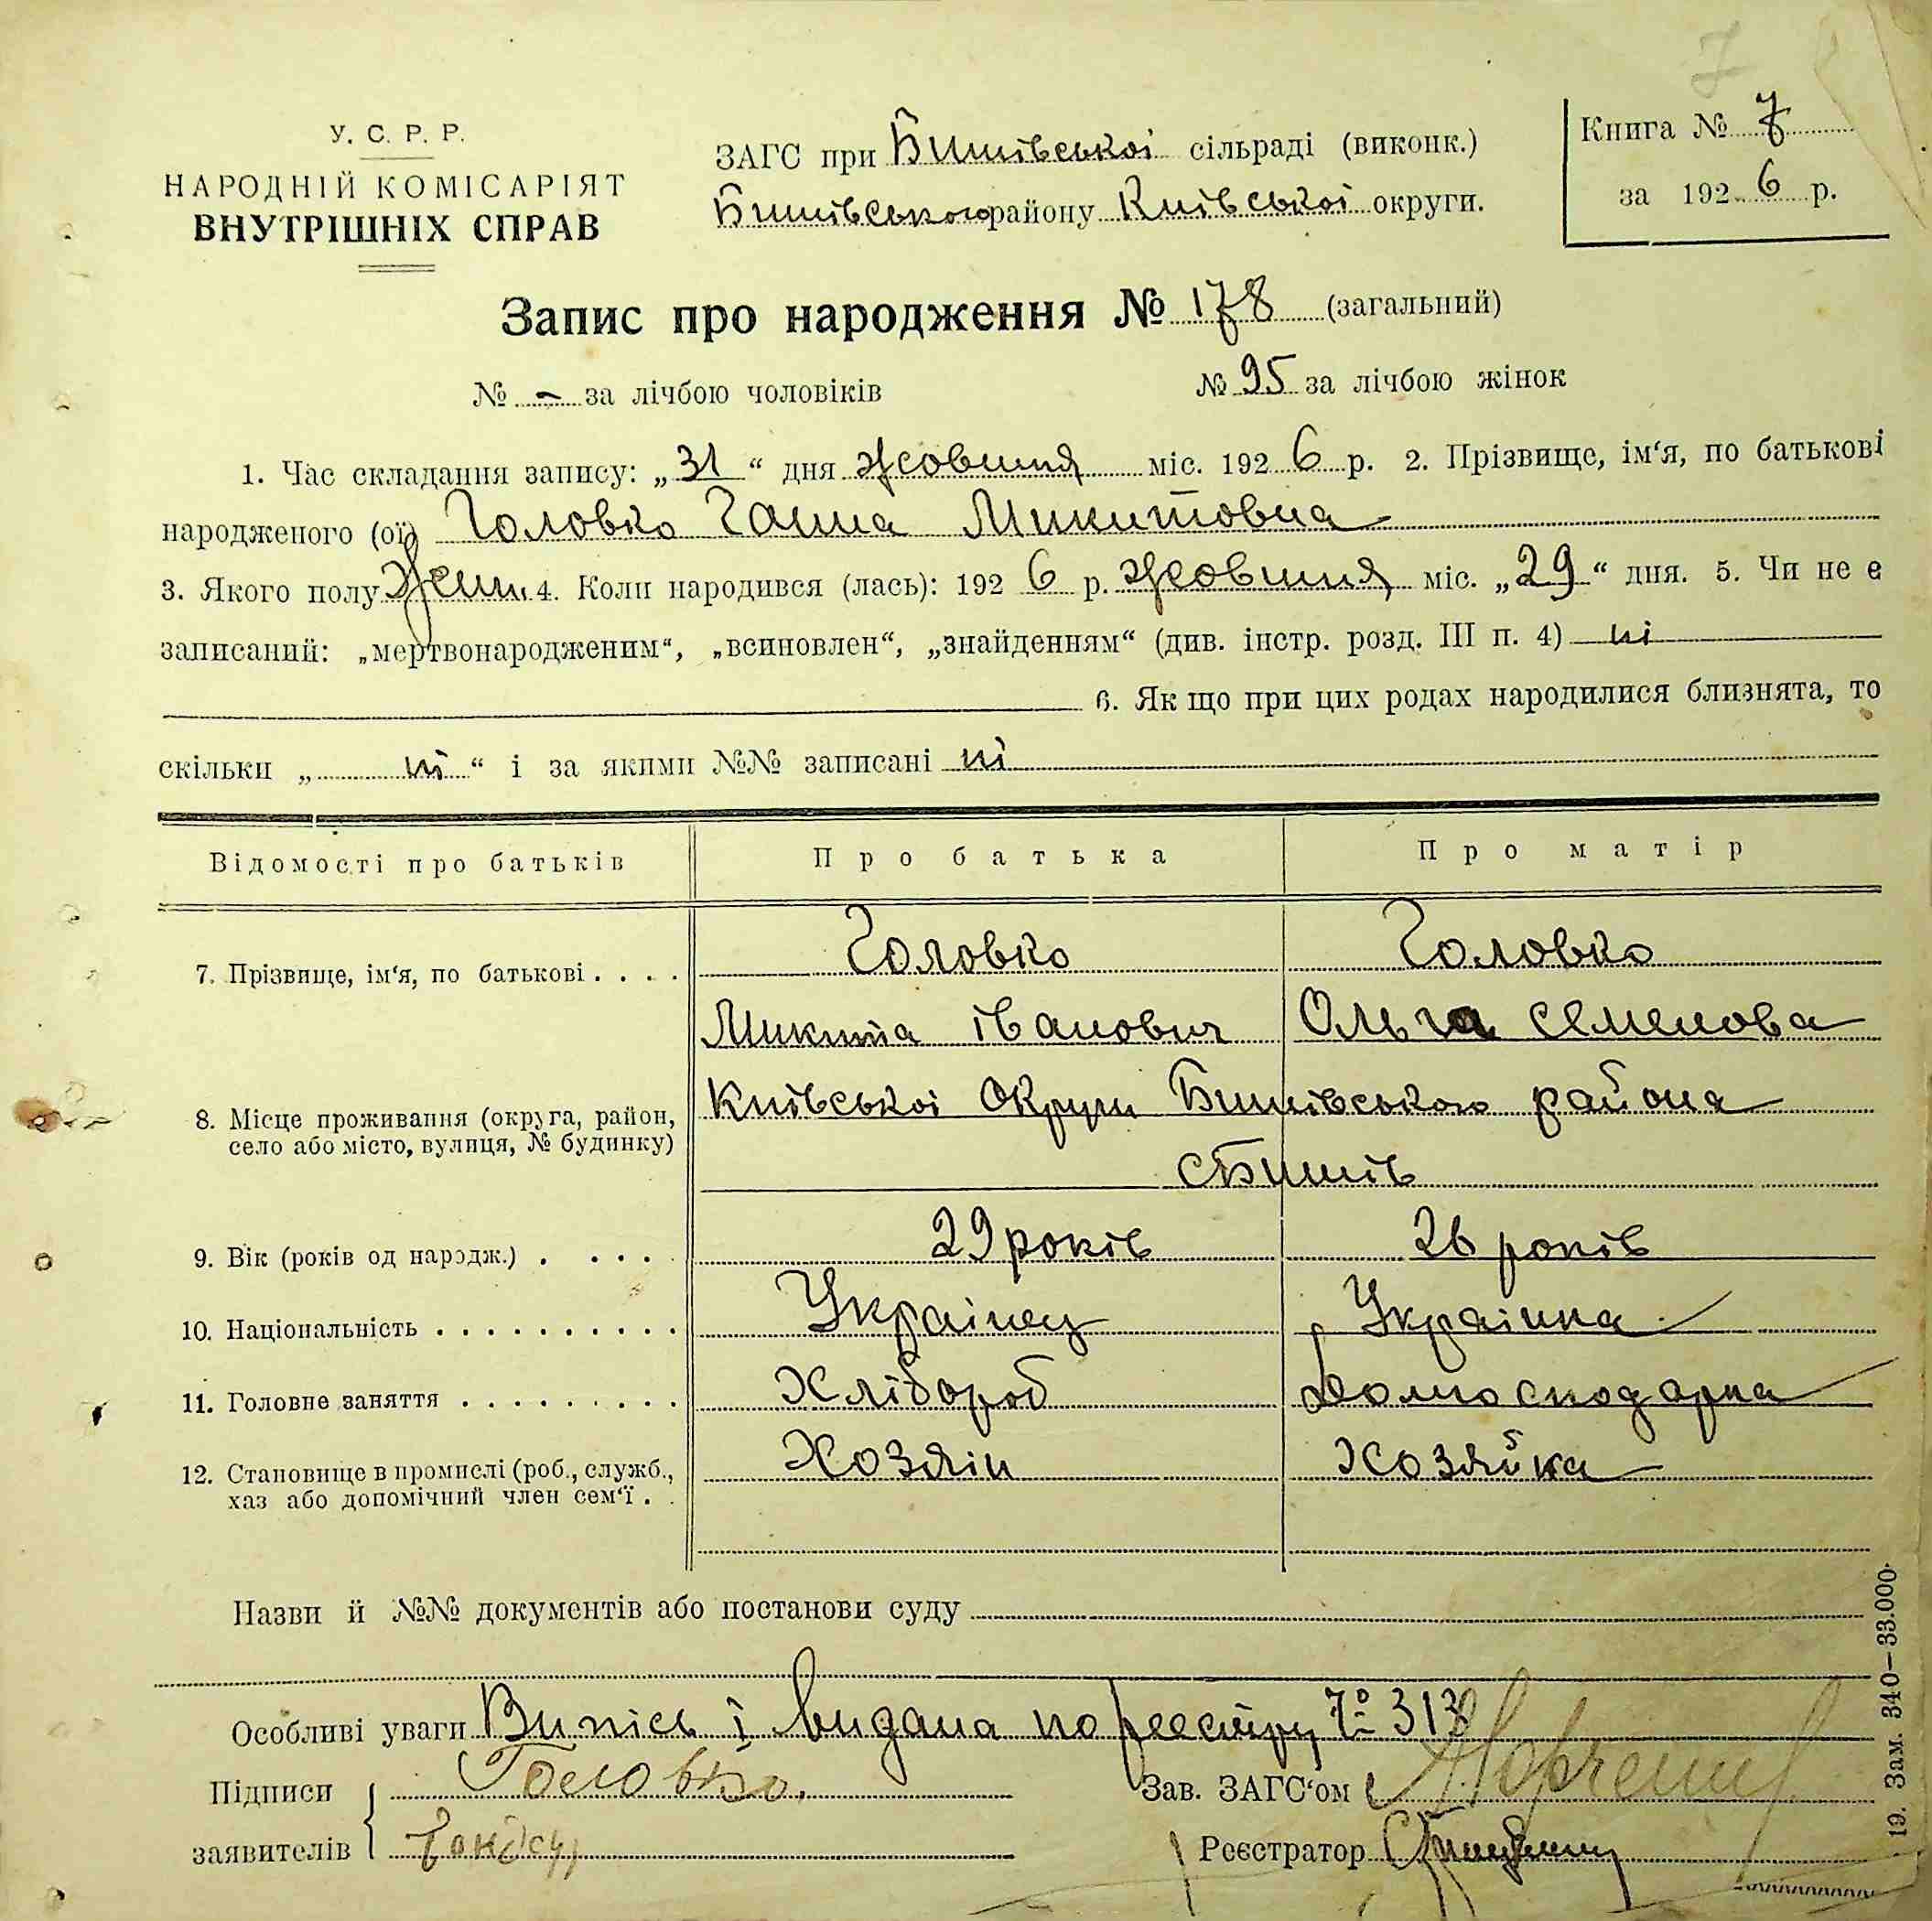 7
У. С. Р. Р.
НАРОДНІЙ КОМІСАРІЯТ
ВНУТРІШНІХ СПРАВ
ЗАГС при Бишівської сільраді (виконк.)
Бишівського району Київської округи.
Книга № 7
за 1926 р.
Запис про народження № 178 (загальний)
№ - за лічбою чоловіків № 95 за лічбою жінок
1. Час складання запису: „31“ дня жовтня міс. 1926 р. 2. Прізвище, ім‘я, по батькові
народженого (ої) Головко Ганна Микитовна
3. Якого полу жен. 4. Коли народився (лась): 1926 р. жовтня міс. „29“ дня. 5. Чи не е
записаний: „мертвонародженим“, „всиновлен“, „знайденням“ (див. інстр. розд. III п. 4) ні
6. Як що при цих родах народилися близнята, то
скільки „ ні “ і за якими №№ записані ні
Відомості про батьків Про батька Про матір
7. Прізвище, ім‘я, по батькові . . . . Головко Головко
Микита Іванович Ольга Семенова
8. Місце проживання (округа, район, Київської Округи Бишівського района
село або місто, вулиця, № будинку)
с Бишів
9. Вік (років од народж.) . . . . . 29 років 26 років
10. Національність . . . . . . . . . . Українец Українка
11. Головне заняття . . . . . . . . . Хлібороб Домогосподарка
12. Становище в промислі (роб., служб., Хозяін Хозяйка
хаз або допомічний член сем‘ї . .
Назви й №№ документів або постанови суду
Особливі уваги Випісь і видана по реєстру № 313
Підписи Головко.
Зав. ЗАГС‘ом
заявителів
Реєстратор
19. Зам. 340—33.000.